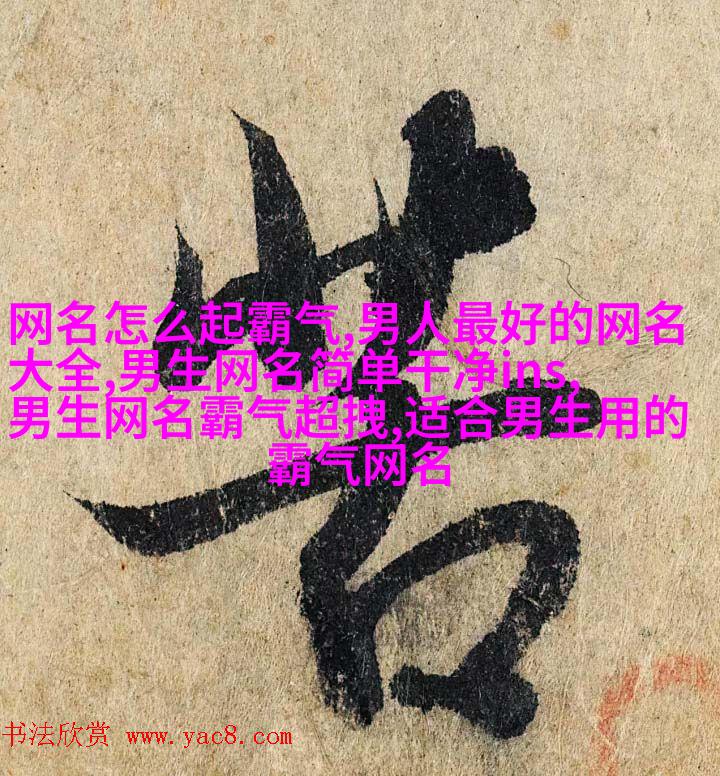 网名怎么起霸气,男人最好的网名
大全,男生网名简单干净ins,
男生网名霸气超拽,适合男生用的
霸气网名
书法欣赏 www.yac8.com